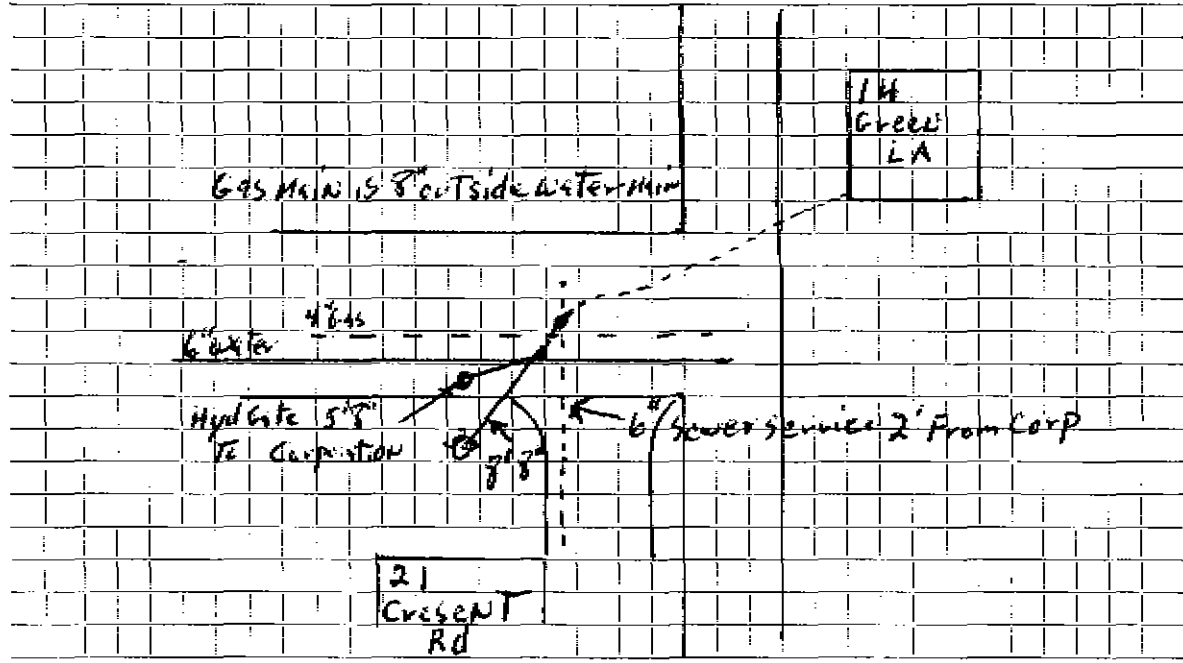 14
Green
LA
Gas Main is 8" outside water main
4" Gas
6" water
Hyd Gate 5'8"
To Corporation
8'8"
6" Sewer service 2' From Corp
21
Cresent
Rd